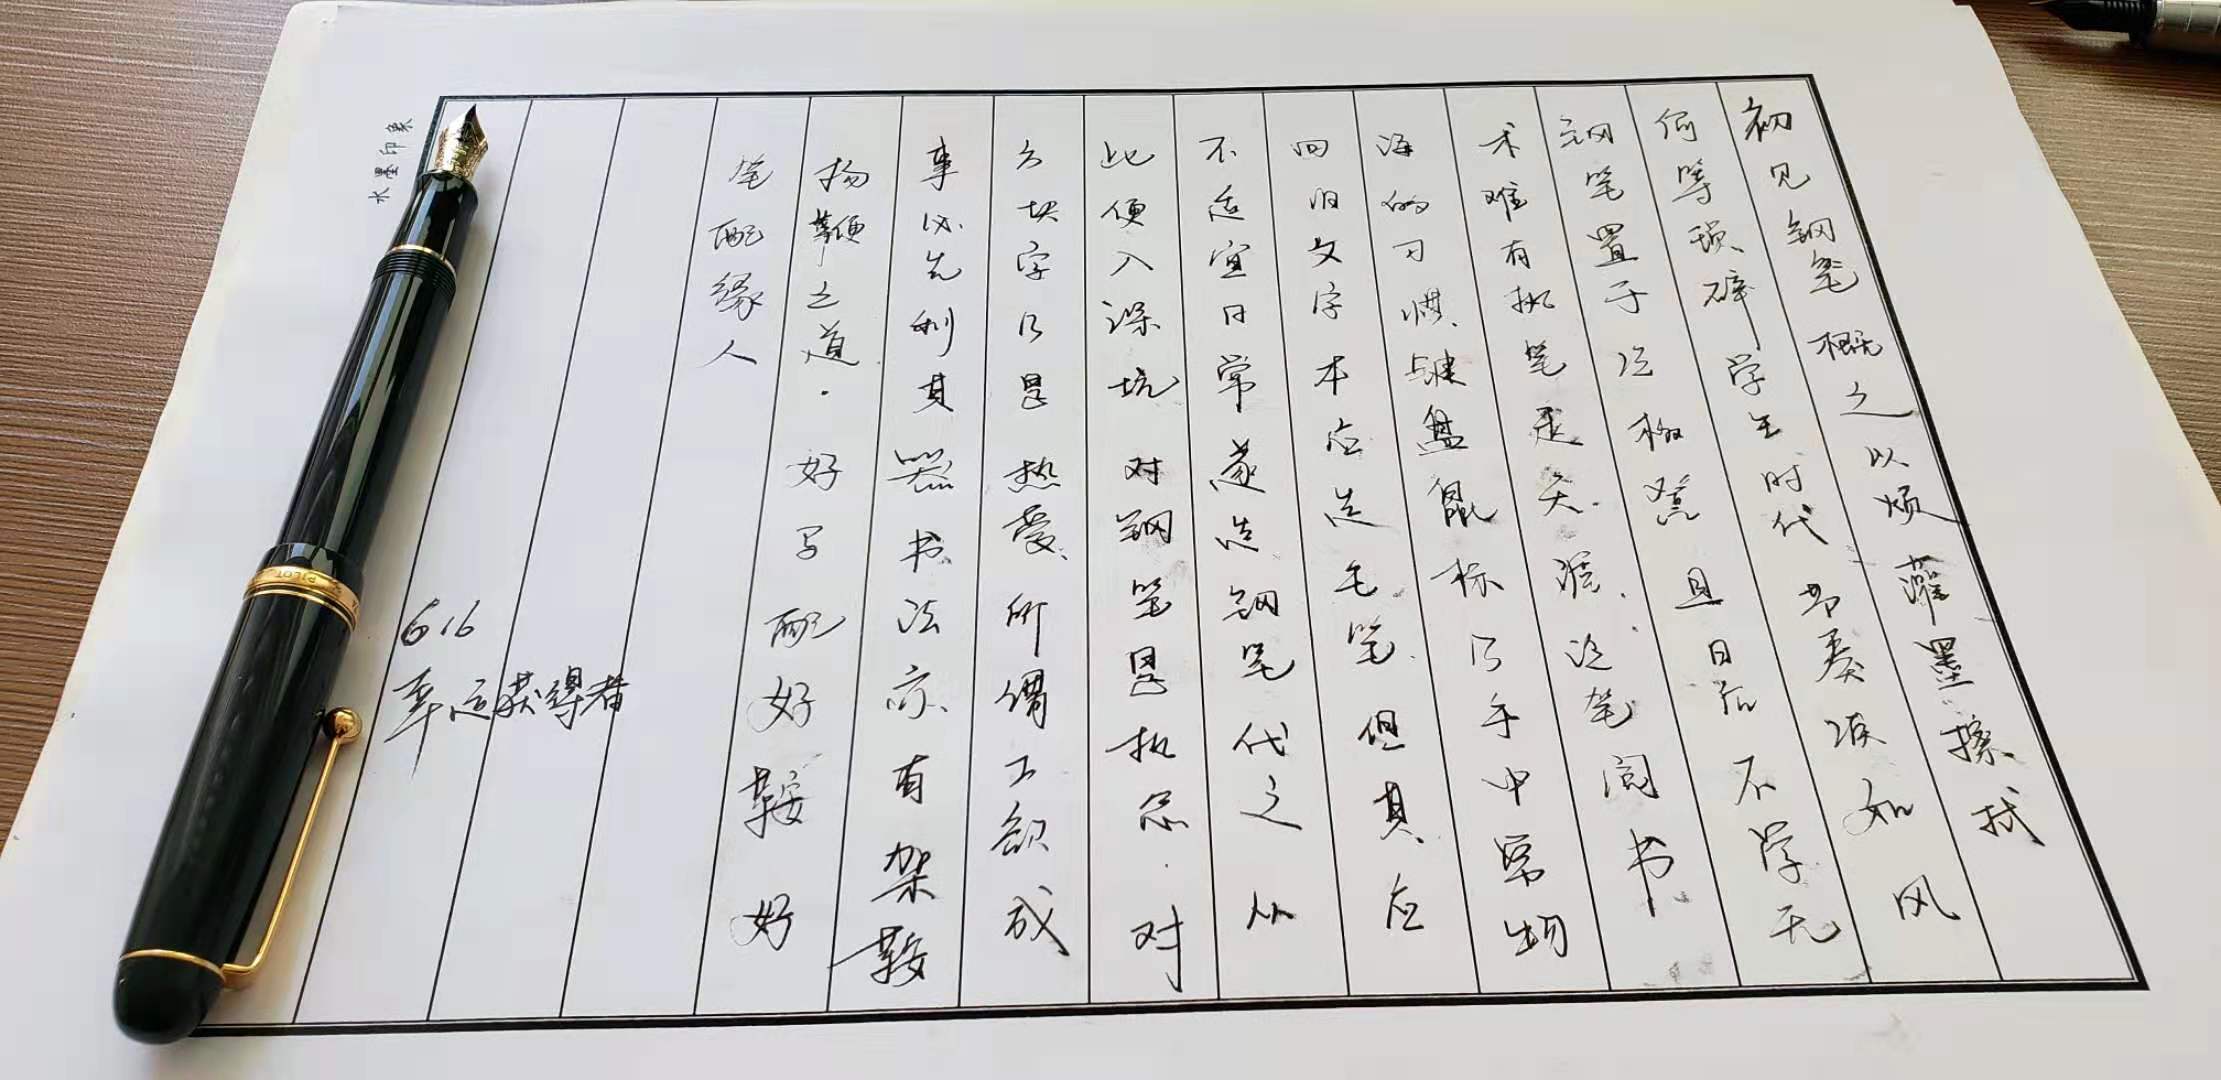 初见钢笔概之以烦灌墨擦拭
何等琐碎学生时代节奏须如风
钢笔置于且日后不学无
术难有执笔走天涯笔阅书
海的习惯键盘鼠标乃手中常物
回归文字本应选毛笔但其应
不适宜日常遂选钢笔代之从
此便入深坑对钢笔是执念.对
方块字乃是热爱所谓工欲成
事必先利其器书法亦有架鞍
扬鞭之道.好马配好鞍好
笔配缘人
616
幸运获得者
水墨印象
PILOT